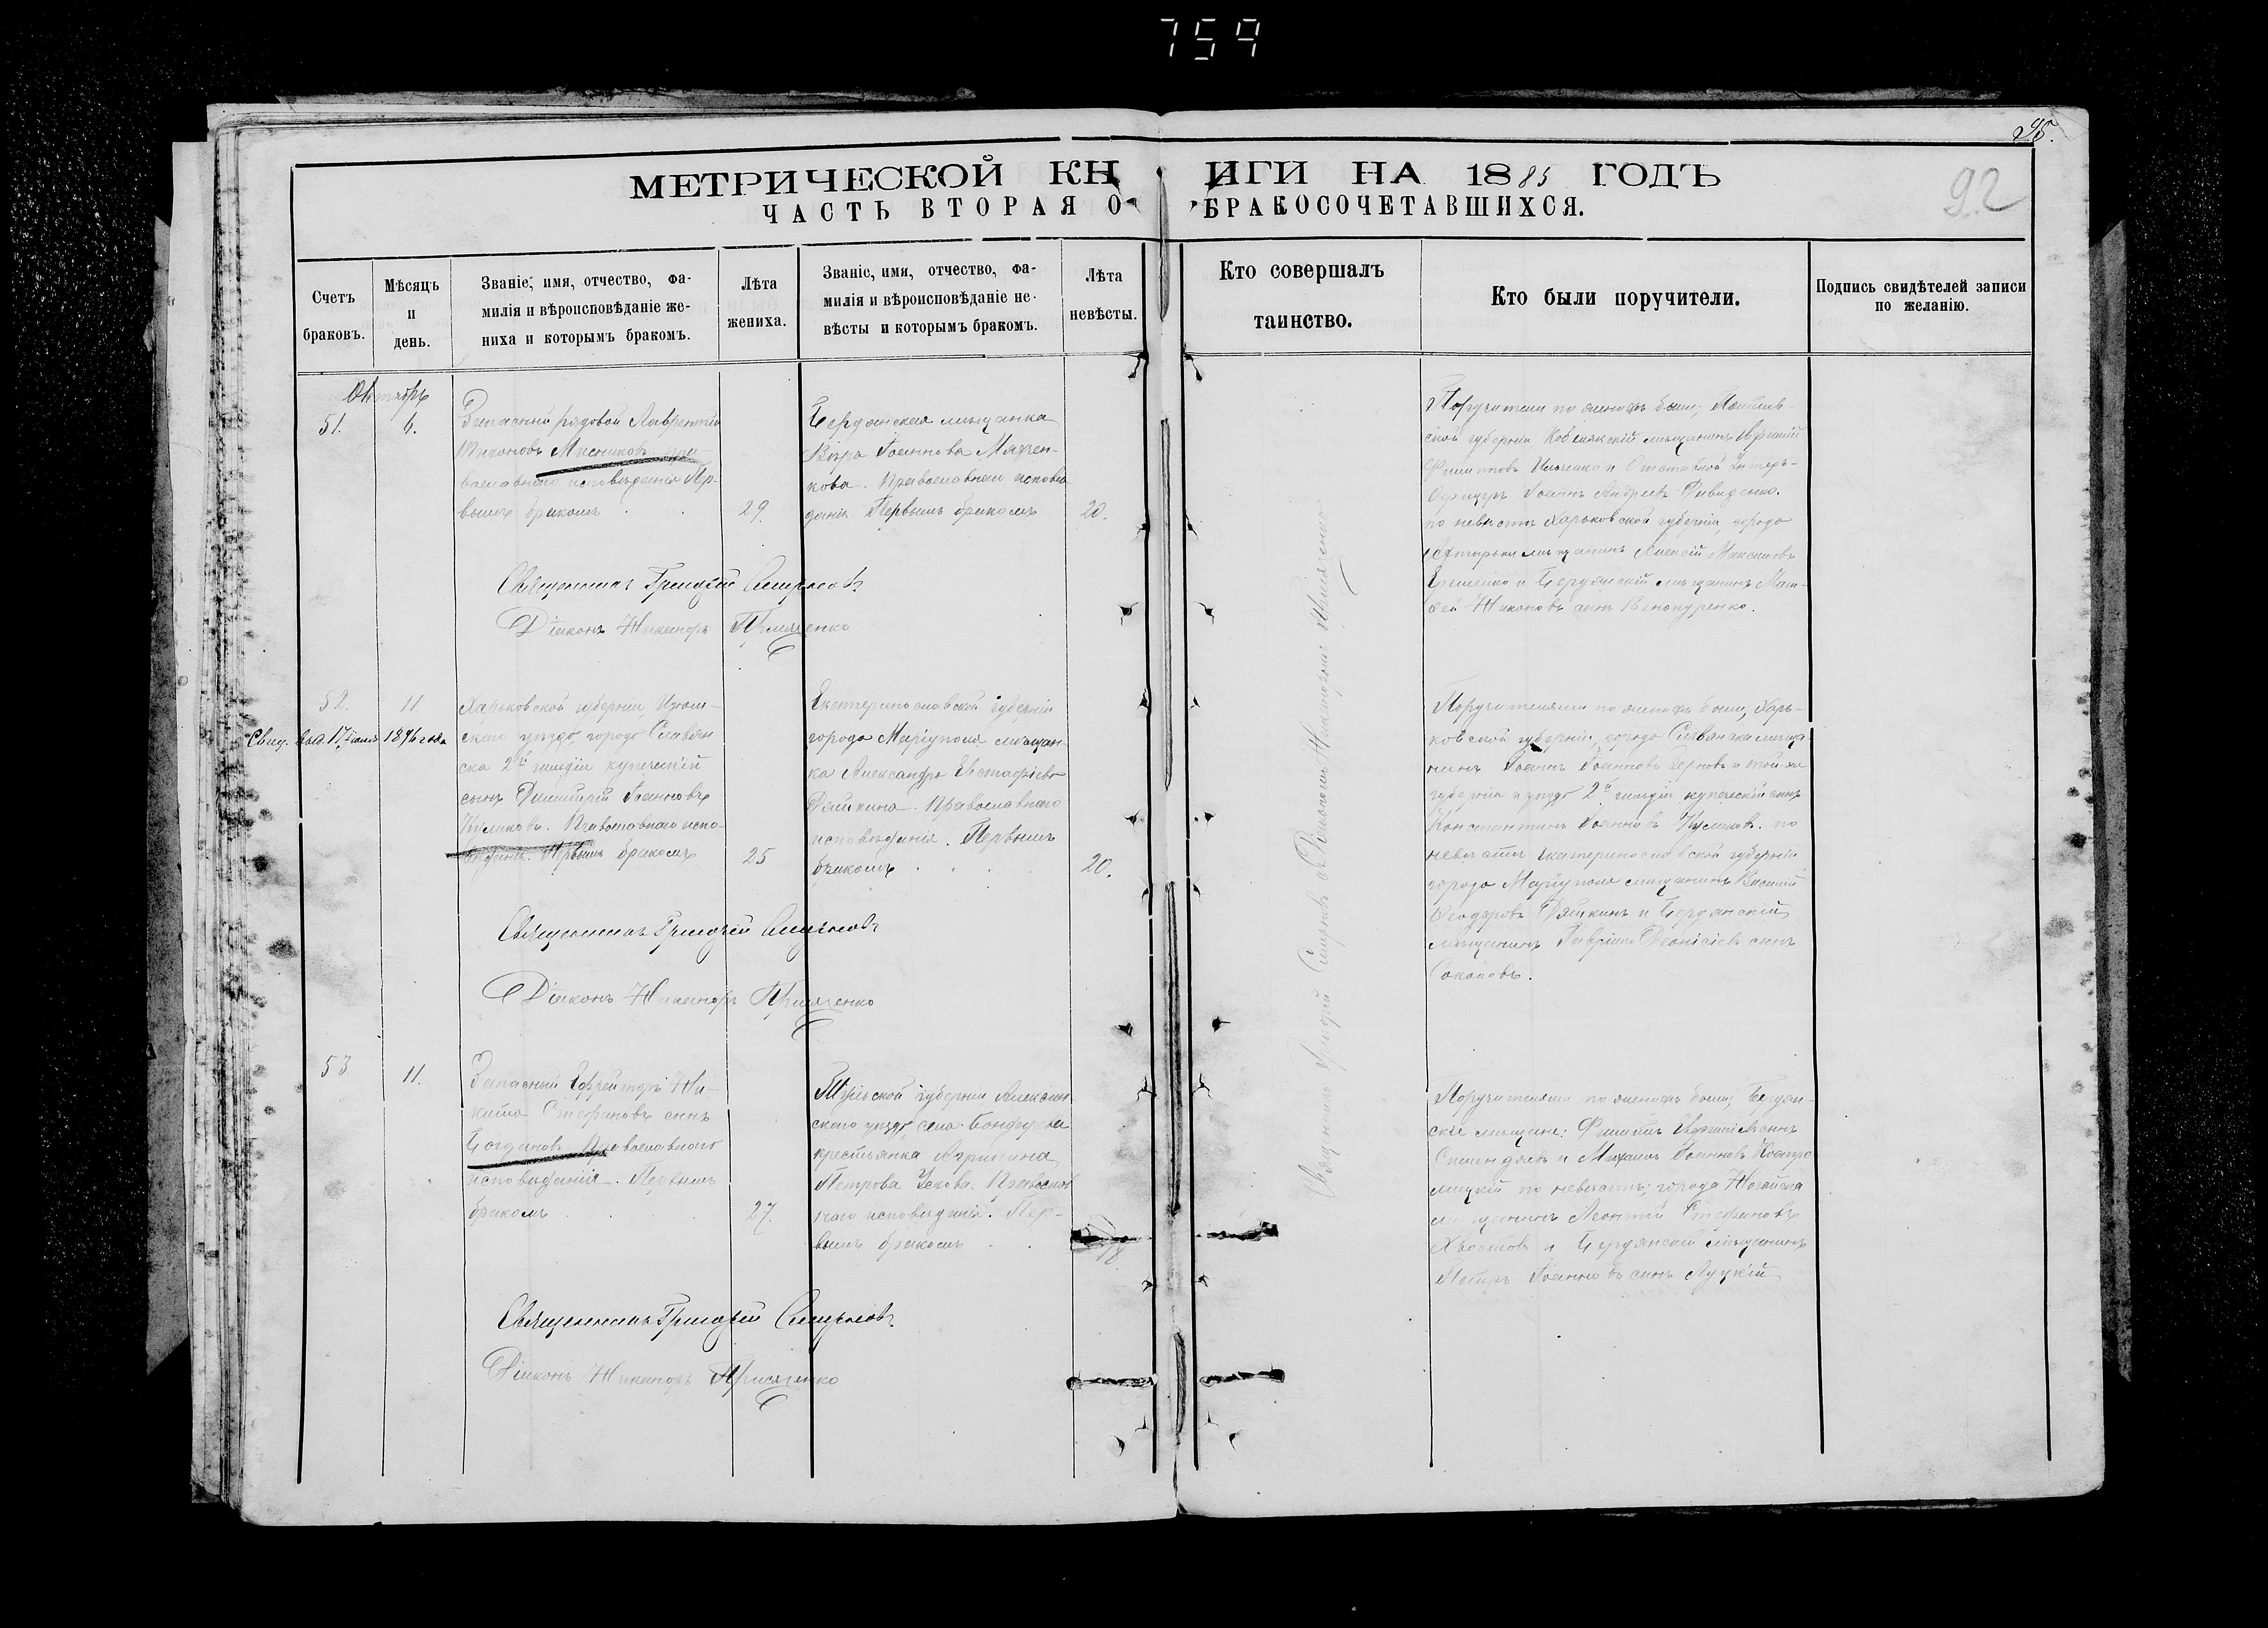 759
95.
92
МЕТРИЧЕСКОЙ КНИГИ НА 1885 ГОДЪ
ЧАСТЬ ВТОРАЯ О БРАКОСОЧЕТАВШИХСЯ.
Счетъ
браковъ.
Мѣсяцъ
и
день.
Званіе, имя, отчество, фа-
милія и вѣроисповѣданіе же-
ниха и которымъ бракомъ.
Лѣта
жениха.
Званіе, имя, отчество, фа-
милія и вѣроисповѣданіе не-
вѣсты и которымъ бракомъ.
Лѣта
невѣсты.
Кто совершалъ
таинство.
Кто были поручители.
Подпись свидѣтелей записи
по желанію.
Октябрь
51.
6.
Запасный рядовой Лаврентій
Мясниковъ пра-
вославнаго исповѣданія Пер-
вымъ бракомъ
29.
Бердянская мѣщанка
Вѣра Іоаннова
кова. Православнаго исповѣ
данія. Первымъ бракомъ
20.
Поручители по женихѣ были; Полтав-
ской губерніи Кобелякскій мѣщанинъ
Филипповъ Ильченко и Отставной Унтеръ-
Офицеръ Іоаннъ Андреевъ
по невѣстѣ Харьковской губерніи, города
Ахтырки мѣщанинъ Алексій Максимовъ
и Бердянскій мѣщанинъ Мат-
ѳей Никоновъ сынъ Винокуренко.
Священникъ Григорій Смирновъ
Діаконъ Никаноръ Присяженко
52.
11.
Свид. выд. 17 1896 года
Харьковской губерніи, Изюм-
скаго уѣзда, города Славян
ска 2й гильдіи купеческій
сынъ Димитрій Іоанновъ
Куликовъ. Православнаго испо-
вѣданія. Первымъ бракомъ
25
Екатеринославской губерніи
города Маріуполя мѣщан-
ка Александра Евстафіева
Дяшкина. Православнаго
исповѣданія. Первымъ
бракомъ
20.
Поручителями по женихѣ были, Харь-
ковской губерніи, города Славянска мѣща-
нинъ Іоаннъ Іоанновъ и той-же
губерніи и уѣзда 2й гильдіи купеческій сынъ
Константинъ Іоанновъ Куликовъ. по
невѣстѣ Екатеринославской губерніи
города Маріуполя мѣщанинъ Василій
Ѳеодоровъ Дяшкинъ и Бердянскій
мѣщанинъ Гавріилъ Діонисіевъ сынъ
Соколовъ.
Священникъ Григорій Смирновъ
Діаконъ Никаноръ Присяженко
53
11.
Запасный Ефрейторъ Ни-
кита Стефановъ сынъ
Богдановъ Православнаго
исповѣданія. Первымъ
бракомъ
27.
Тульской губерніи Алексин
скаго уѣзда, села
крестьянка Агрипина
Петрова. Православ
наго исповѣданія. Пер-
вымъ бракомъ
Поручителями по женихѣ были; Бердян-
скіе мѣщане: Филиппъ сынъ
и Михаилъ Іоанновъ
по невѣстѣ; города Ногайска
мѣщанинъ Леонтій Стефановъ
Хвостовъ и Бердянскій мѣщанинъ
Петръ Іоанновъ сынъ Луцкій
Священникъ Григорій Смирновъ
Діаконъ Никаноръ Присяженко
Священникъ Григорій Смирновъ съ Діакономъ Никаноромъ Присяженко